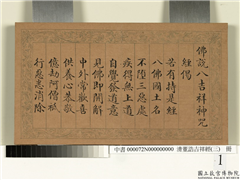 佛說八吉祥神咒
經偈
若有持是經
八佛國土名
不墮三惡處
疾得無上道
自譽發道意
見佛即開解
中外常歡喜
供養心恭敬
億劫阿僧祇
行惡悉消除
中書 000072N000000000 清雍語吉祥經(二) 冊
1
國立故宮博物院